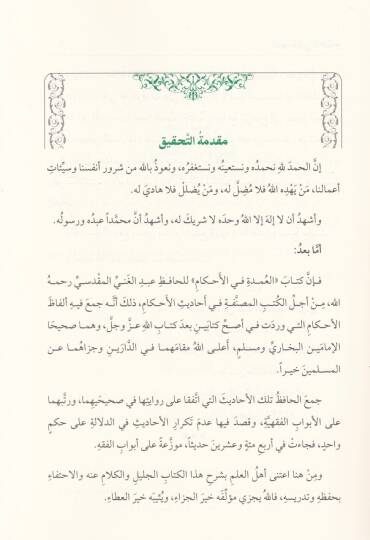 مقدمةُ التَّحقيق
إنَّ الحمدَ للهِ نحمدُه ونستعينُه ونستغفرُه، ونعوذُ بالله من شرور أنفسنا وسيِّئاتِ
أعمالنا، مَنْ يَهْدِه اللهُ فلا مُضِلَّ له، ومَنْ يُضلل فلا هاديَ له.
وأشهدُ أن لا إلهَ إلا اللهُ وحدَه لا شريكَ له، وأشهدُ أنَّ محمَّداً عبدُه ورسولُه.
أمَّا بعدُ:
فإنَّ كتابَ «العُمدةِ في الأحكامِ» للحافظِ عبدِ الغنيِّ المقدسيِّ رحمهُ
الله، مِنْ أجلِّ الكُتبِ المصنَّفةِ في أحاديثِ الأحكامِ، ذلكَ أنَّه جمعَ فيهِ ألفاظَ
الأحكامِ التي وردَت في أصحِّ كتابَينِ بعدَ كتابِ اللهِ عزَّ وجلَّ، وهما صحيحَا
الإمامَينِ البخاريِّ ومسلمٍ، أعلى اللهُ مقامَهما في الدَّارَينِ وجزاهُما عن
المسلمينَ خيراً.
جمعَ الحافظُ تلك الأحاديثَ التي اتَّفقا على روايتِها في صحيحَيهِما، ورتَّبهما
على الأبوابِ الفقهيَّةِ، وقصدَ فيها عدمَ تَكرارِ الأحاديثِ في الدلالةِ على حكمٍ
واحدٍ، فجاءتْ في أربعِ مئةٍ وعشرينَ حديثاً، موزَّعةً على أبوابِ الفقهِ.
ومِنْ هنا اعتنى أهلُ العلمِ بشرحِ هذا الكتابِ الجليلِ والكلامِ عنه والاحتفاءِ
بحفظِهِ وتدريسِهِ، فاللهُ يجزي مؤلِّفَه خيرَ الجزاءِ، ويُثيبُه خيرَ العطاءِ.